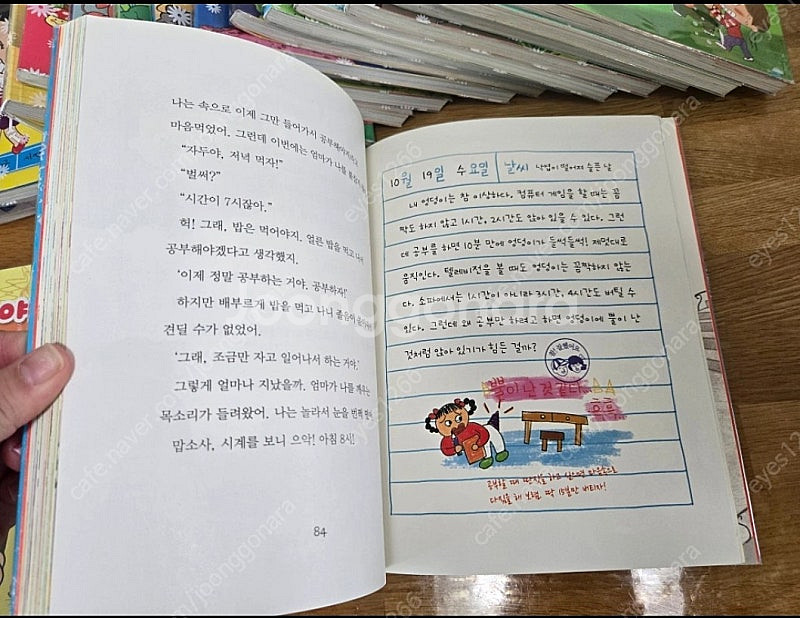 나는 속으로 이제 그만 들어가서 공부해야지
마음먹었어. 그런데 이번에는 엄마가 나를
“자두야, 저녁 먹자!”
“벌써?”
“시간이 7시잖아.”
헉! 그래, 밥은 먹어야지. 얼른 밥을 먹고 나서
공부해야겠다고 생각했지.
‘이제 정말 공부하는 거야. 공부하자!’
하지만 배부르게 밥을 먹고 나니 졸음이
견딜 수가 없었어.
‘그래, 조금만 자고 일어나서 하는 거야.’
그렇게 얼마나 지났을까. 엄마가 나를 깨우는
목소리가 들려왔어. 나는 놀라서 눈을 번쩍
맙소사, 시계를 보니 으악! 아침 8시!
84
10월 19일 수요일 날씨 낙엽이 떨어져 슬픈 날
내 엉덩이는 참 이상하다. 컴퓨터 게임을 할 때는 꼼
짝도 하지 않고 1시간, 2시간도 앉아 있을 수 있다. 그런
데 공부를 하면 10분 만에 엉덩이가 들썩들썩! 제멋대로
움직인다. 텔레비전을 볼 때도 엉덩이는 꼼짝하지 않는
다. 소파에서는 1시간이 아니라 3시간, 4시간도 버틸 수
있다. 그런데 왜 공부만 하려고 하면 엉덩이에 뿔이 난
것처럼 앉아 있기가 힘든 걸까?
참! 잘했어요
뿔이 난 것 같다
흐흐
공부할 때 딴짓을 하고 싶으면 마음속으로
다짐을 해 보렴. 딱 15분만 버티자!
야
joonggonara
cafe.naver.com/joonggonara
eyes1266